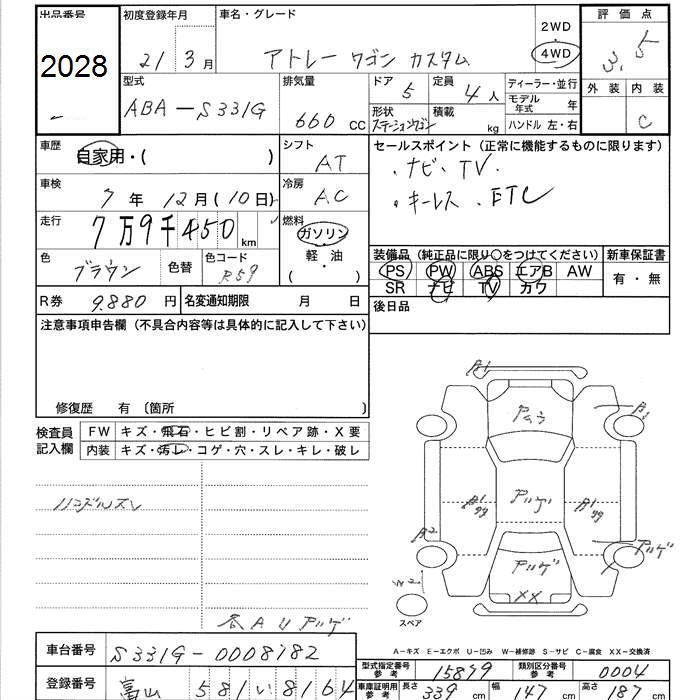 出品番号 初度登録年月 車名・グレード 2WD 評価点
2028 21 3月 アトレー ワゴン カスタム 4WD 3.5
型式 排気量 ドア 定員 ディーラー・並行 外装 内装
ABA-S331G 660 CC 5 4人 モデル年式 年 C
形状 積載 ハンドル 左・右
ステーションワゴン kg
車歴 自家用・( ) シフト AT セールスポイント (正常に機能するものに限ります)
・ナビ・TV.
車検 7年 12月(10日) 冷房 AC ・キーレス .ETC
走行 7万9千450km 燃料 ガソリン
軽・油
( )
色 ブラウン 色替 色コード R59
装備品 (純正品に限り○をつけてください) 新車保証書
PS PW ABS エアB AW 有・無
SR ナビ TV カワ
R券 9.880円 名変通知期限 月 日 後日品
注意事項申告欄 (不具合内容等は具体的に記入して下さい)
修復歴 有 〔箇所 〕
検査員記入欄 FW キズ・飛石・ヒビ割・リペア跡・X要
内装 キズ・汚レ・コゲ・穴・スレ・キレ・破レ
ハンドルスレ
各AUアゲ
A1
アムラ
アッゲ
A2
アッゲ
アッゲ
XX
W2
スペア
A-キズ E-エクボ U-凹み W-補修跡 S-サビ C-腐食 XX-交換済
車台番号 S331G-0008182
登録番号 富山 581 い 8164
型式指定番号 参考 15899 類別区分番号 参考 0004
車庫証明用 参考 長さ 339 cm 幅 147 cm 高さ 187 cm